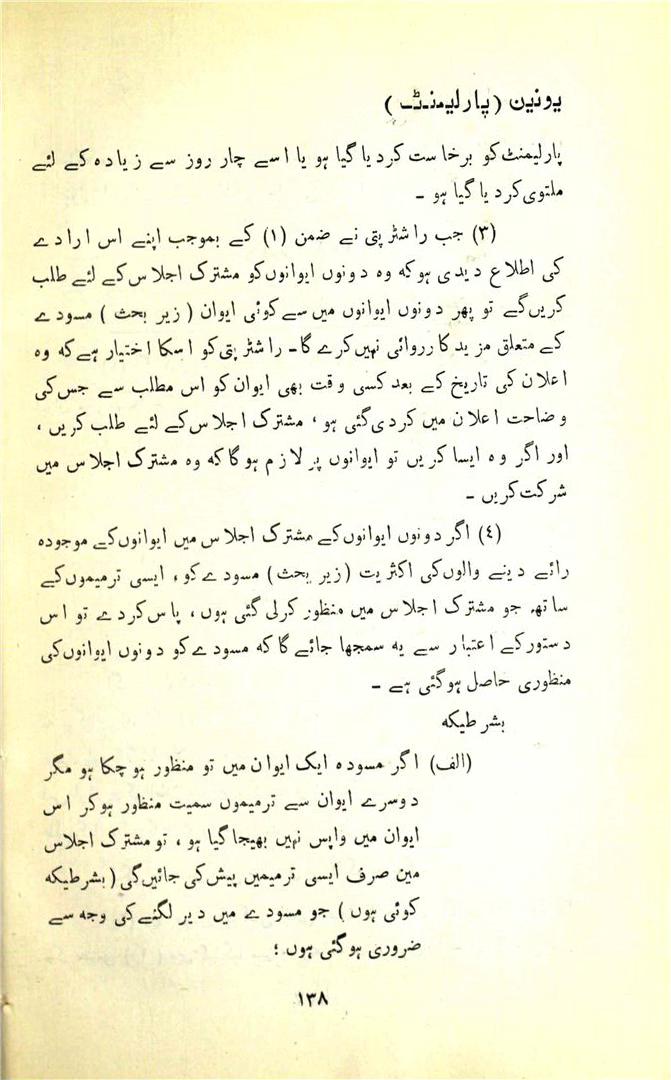 یونین (پارلیمنٹ)
پارلیمنٹ کو برخاست کردیا گیا ہو یا اسے چار روز سے زیادہ کے لئے
ملتوی کردیا گیا ہو ۔
(۳) جب راشٹرپتی نے ضمن (۱) کے بموجب اپنے اس ارادے
کی اطلاع دیدی ہو کہ وہ دونوں ایوانوں کو مشترک اجلاس کے لئے طلب
کریں گے تو پھر دونوں ایوانوں میں سے کوئی ایوان (زیر بحث) مسودے
کے متعلق مزید کارروائی نہیں کرے گا۔ راشٹرپتی کو اسکا اختیار ہے کہ وہ
اعلان کی تاریخ کے بعد کسی وقت بھی ایوان کو اس مطلب سے جس کی
وضاحت اعلان میں کردی گئی ہو ، مشترک اجلاس کے لئے طلب کریں ،
اور اگر وہ ایسا کریں تو ایوانوں پر لازم ہوگا کہ وہ مشترک اجلاس میں
شرکت کریں ۔
(٤) اگر دونوں ایوانوں کے مشترک اجلاس میں ایوانوں کے موجودہ
رائے دینے والوں کی اکثریت (زیر بحث) مسودے کو ، ایسی ترمیموں کے
ساتھ جو مشترک اجلاس میں منظور کرلی گئی ہوں ، پاس کردے تو اس
دستور کے اعتبار سے یہ سمجھا جائے گا کہ مسودے کو دونوں ایوانوں کی
منظوری حاصل ہوگئی ہے ۔
بشرطیکہ
(الف) اگر مسودہ ایک ایوان میں تو منظور ہوچکا ہو مگر
دوسرے ایوان سے ترمیموں سمیت منظور ہوکر اس
ایوان میں واپس نہیں بھیجا گیا ہو ، تو مشترک اجلاس
مین صرف ایسی ترمیمیں پیش کی جائیں گی (بشرطیکہ
کوئی ہوں) جو مسودے میں دیر لگنے کی وجہ سے
ضروری ہوگئی ہوں ؛
۱۳۸